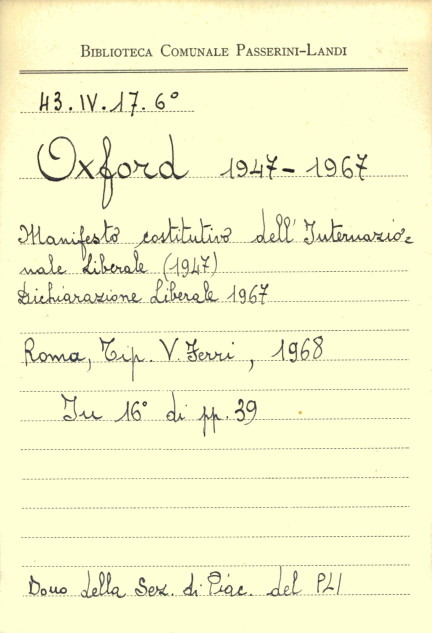 BIBLIOTECA COMUNALE PASSERINI-LANDI
43.IV.17.6°
Oxford 1947-1967
Manifesto costitutivo dell'Internazio=
nale Liberale (1947)
Dichiarazione Liberale 1967
Roma, Tip. V. Ferri, 1968
In 16° di pp. 39
Dono della Sez. di Piac. del PLI